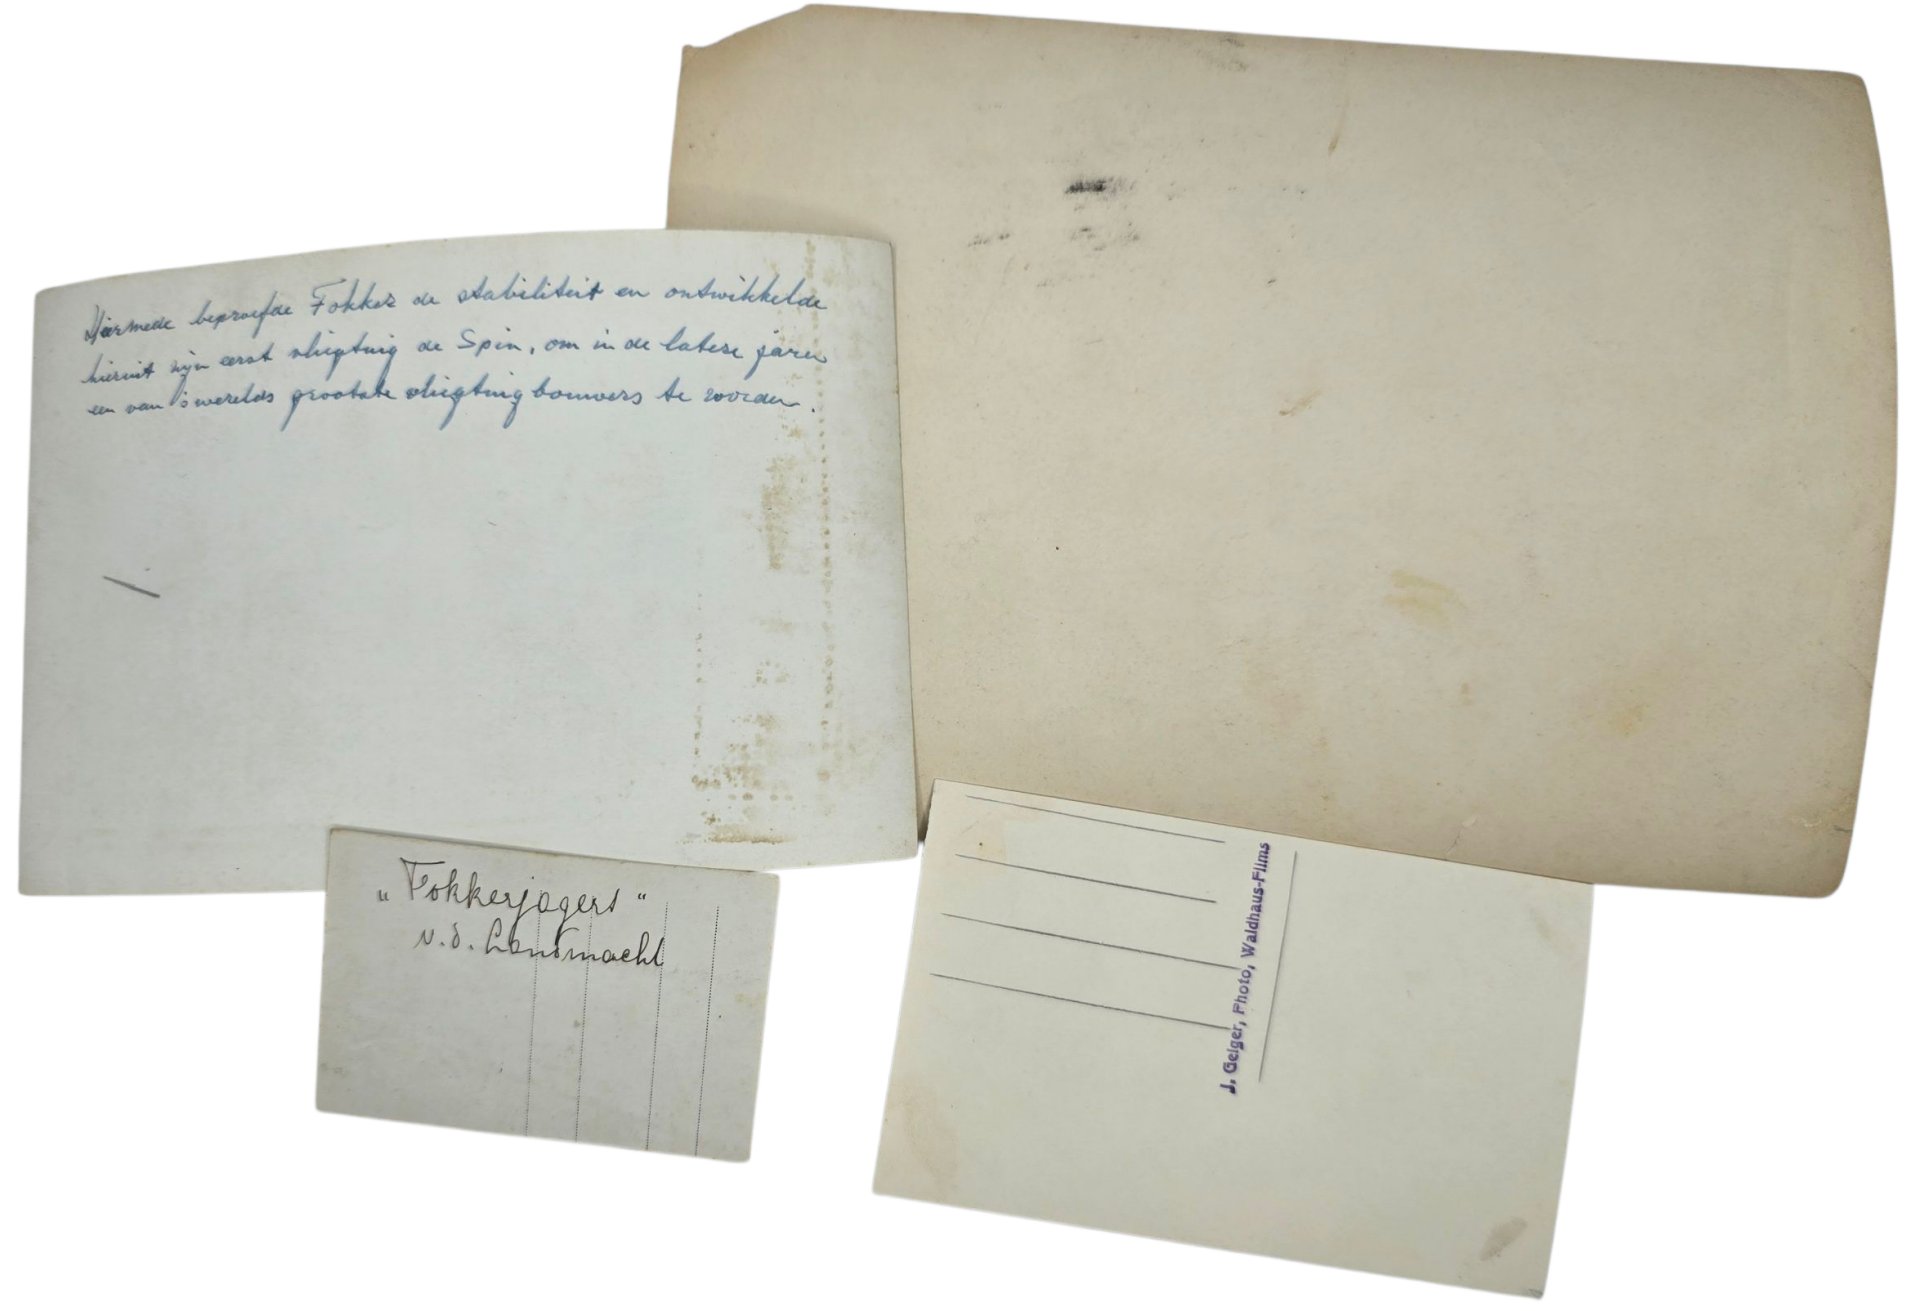 Hiermede beproefde Fokker de stabiliteit en ontwikkelde
hieruit zijn eerst vliegtuig de Spin, om in de latere jaren
een van 's werelds grootste vliegtuigbouwers te worden.
"Fokkerjagers"
v.d. Landmacht
J. Geiger, Photo, Waldhaus-Flims